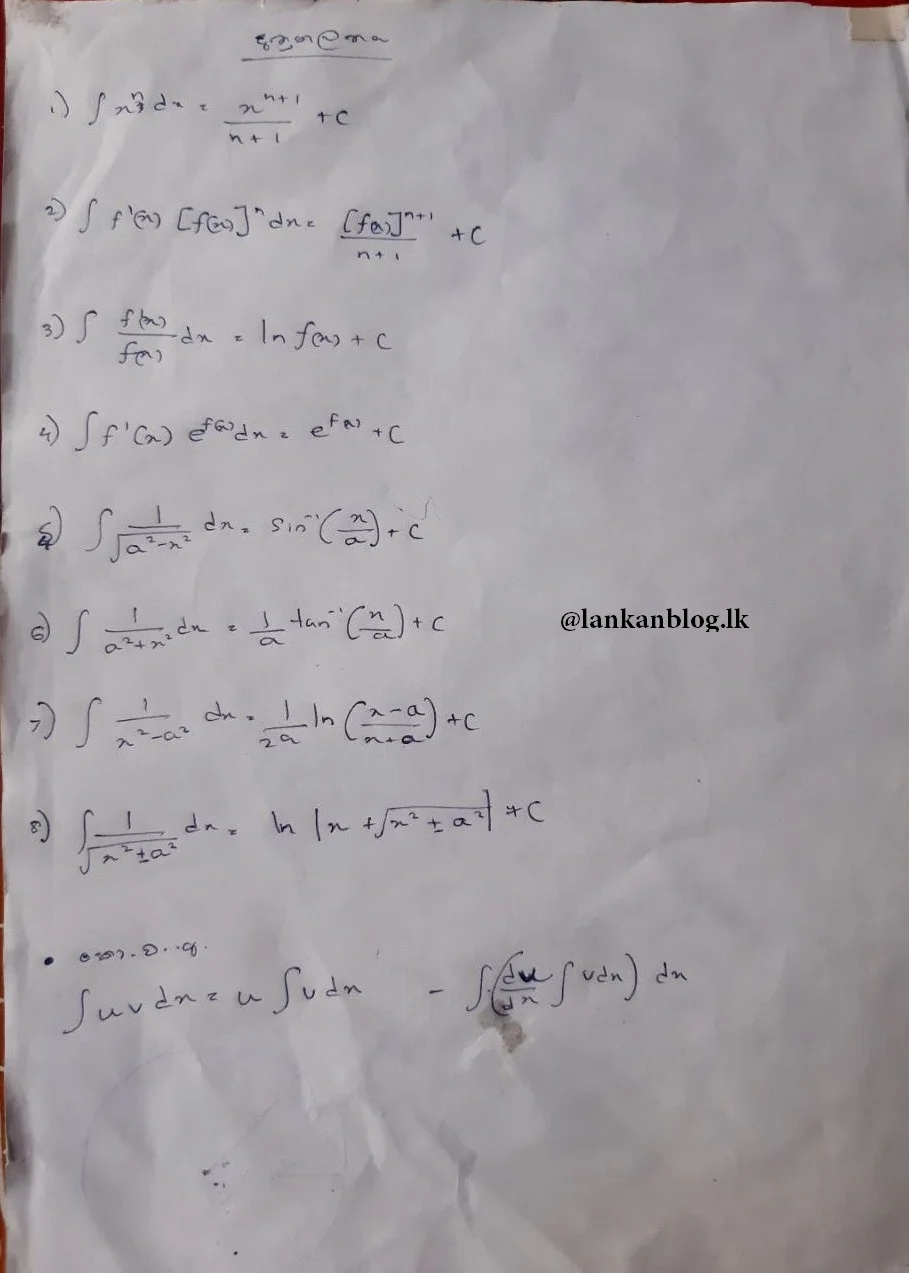 අනුකලනය
1) ∫ xⁿ dx = xⁿ⁺¹/n+1 + C
2) ∫ f'(x) [f(x)]ⁿ dx = [f(x)]ⁿ⁺¹/n+1 + C
3) ∫ f'(x)/f(x) dx = ln f(x) + C
4) ∫ f'(x) e^f(x) dx = e^f(x) + C
5) ∫ 1/√(a²-x²) dx = sin⁻¹(x/a) + C
6) ∫ 1/(a²+x²) dx = 1/a tan⁻¹(x/a) + C
@lankanblog.lk
7) ∫ 1/(x²-a²) dx = 1/2a ln((x-a)/(x+a)) + C
8) ∫ 1/√(x²±a²) dx = ln |x + √(x²±a²)| + C
∫ uv dx = u ∫ v dx - ∫ (du/dx ∫ v dx) dx